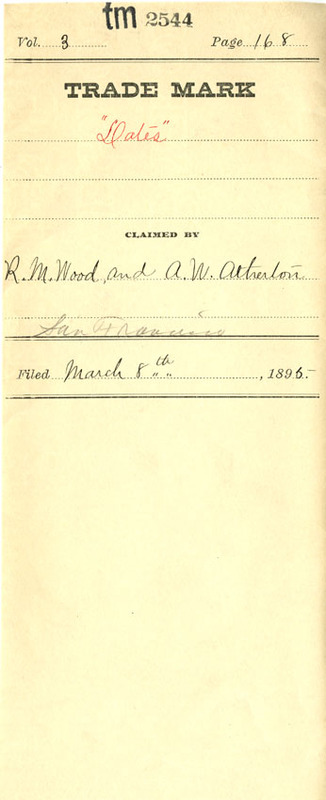 tm 2544
Vol. 3 Page 168
TRADE MARK
"Dates"
CLAIMED BY
R. M. Wood, and A. W. Atherton
San Francisco
Filed March 8th, 1895.